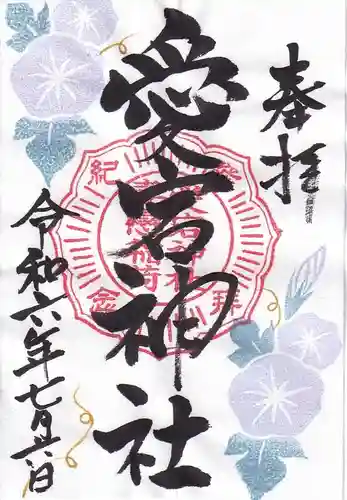 奉拝
愛宕神社
令和六年七月六日
登拝紀念